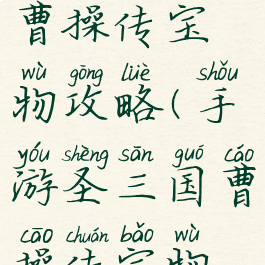 曹操传宝
wù gōng lüè shǒu
物攻略(手
yóu shèng sān guó cáo
游圣三国曹
cāo chuán bǎo wù
操传宝物